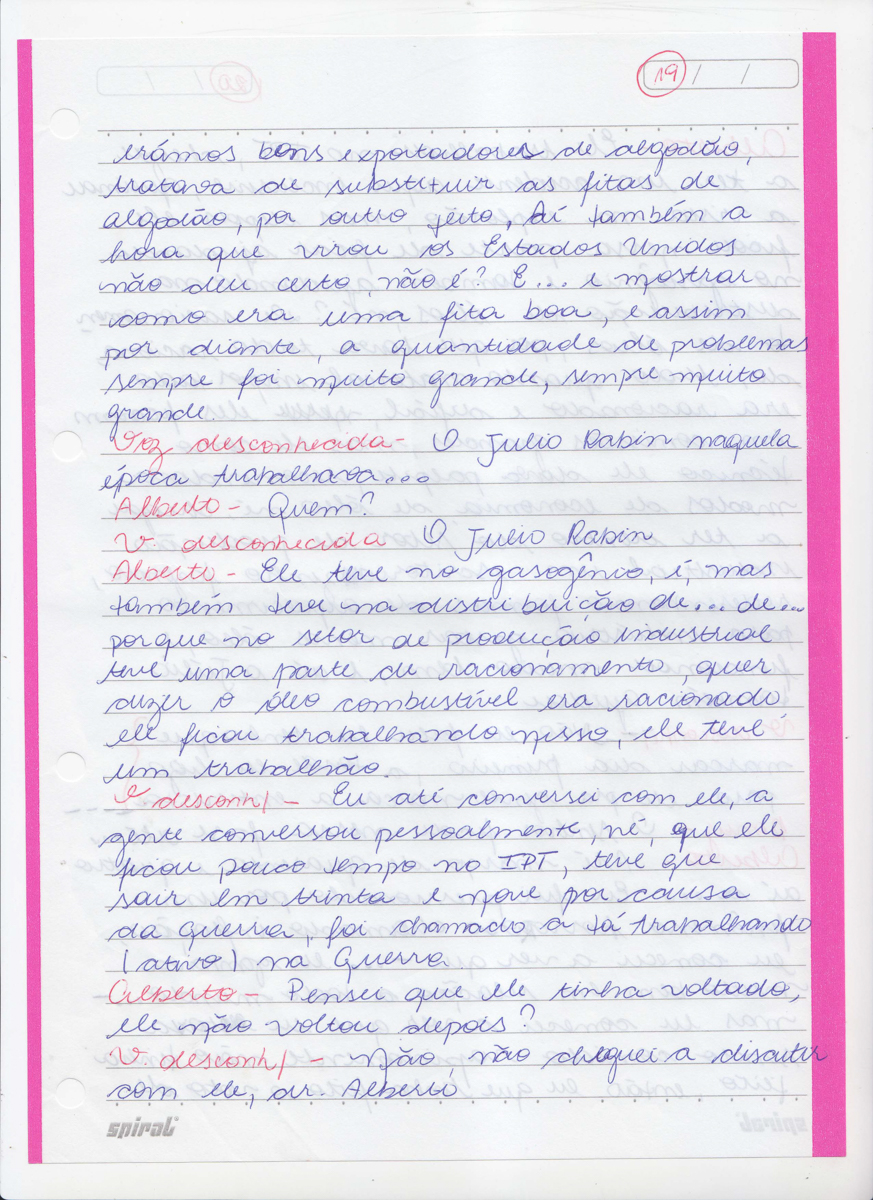 19 / /
erámos bons exportadores de algodão,
tratava de substituir as fitas de
algodão, por outro jeito, Aí também a
hora que virou os Estados Unidos
não deu certo, não é? E... e mostrar
como era uma fita boa, e assim
por diante, a quantidade de problemas
sempre foi muito grande, sempre muito
grande.
Voz desconhecida - O Julio Rabin naquela
época trabalhava...
Alberto - Quem?
V. desconhecida O Julio Rabin
Alberto - Ele teve no gasogênio, é, mas
também teve na distribuição de... de...
porque no setor de produção industrial
teve uma parte de racionamento, quer
dizer o óleo combustível era racionado
ele ficou trabalhando nisso, ele teve
um trabalhão.
V desconh/ - Eu até conversei com ele, a
gente conversou pessoalmente, né, que ele
ficou pouco tempo no IPT, teve que
sair em trinta e nove por causa
da Guerra, foi chamado a tá trabalhando
(ativo) na Guerra.
Alberto - Pensei que ele tinha voltado,
ele não voltou depois?
V. desconh/ - Não, não cheguei a discutir
com ele, dr. Alberto
spiral